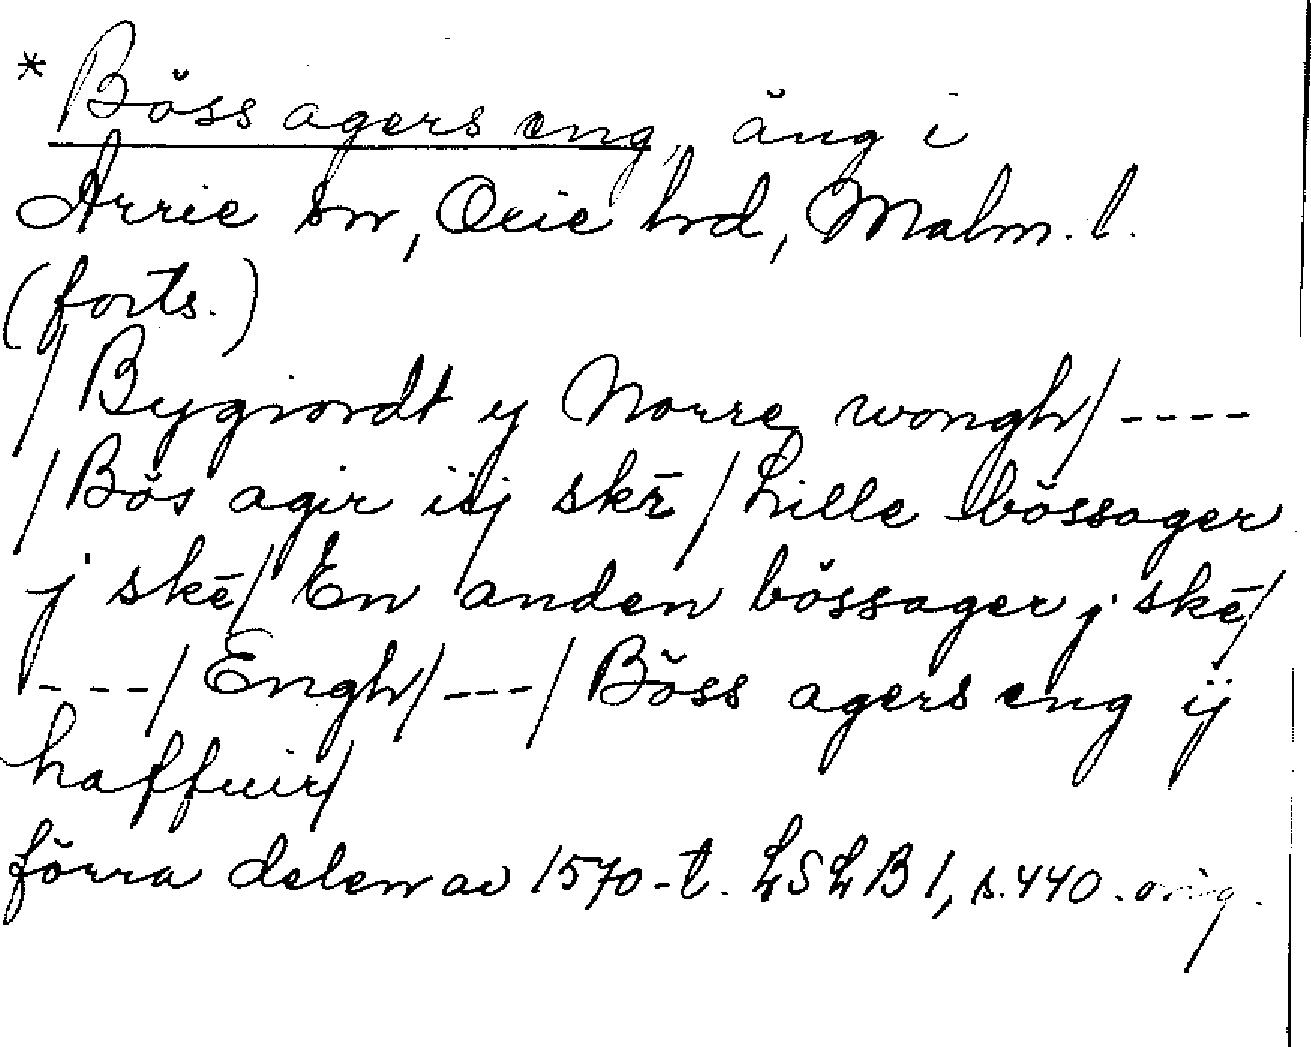 * Böss agers eng, äng i
Arrie sn, Oxie hd, Malm. l.
(forts.)
/Bygiordt y Norre wongh/----
/Bös agir iij skē/Lille bössager
j skē/En anden bössager j skē/
---/Engh/---/Böss agers eng ij
haffuir/
förra delen av 1570-t. LSLB 1, s. 440. orig.